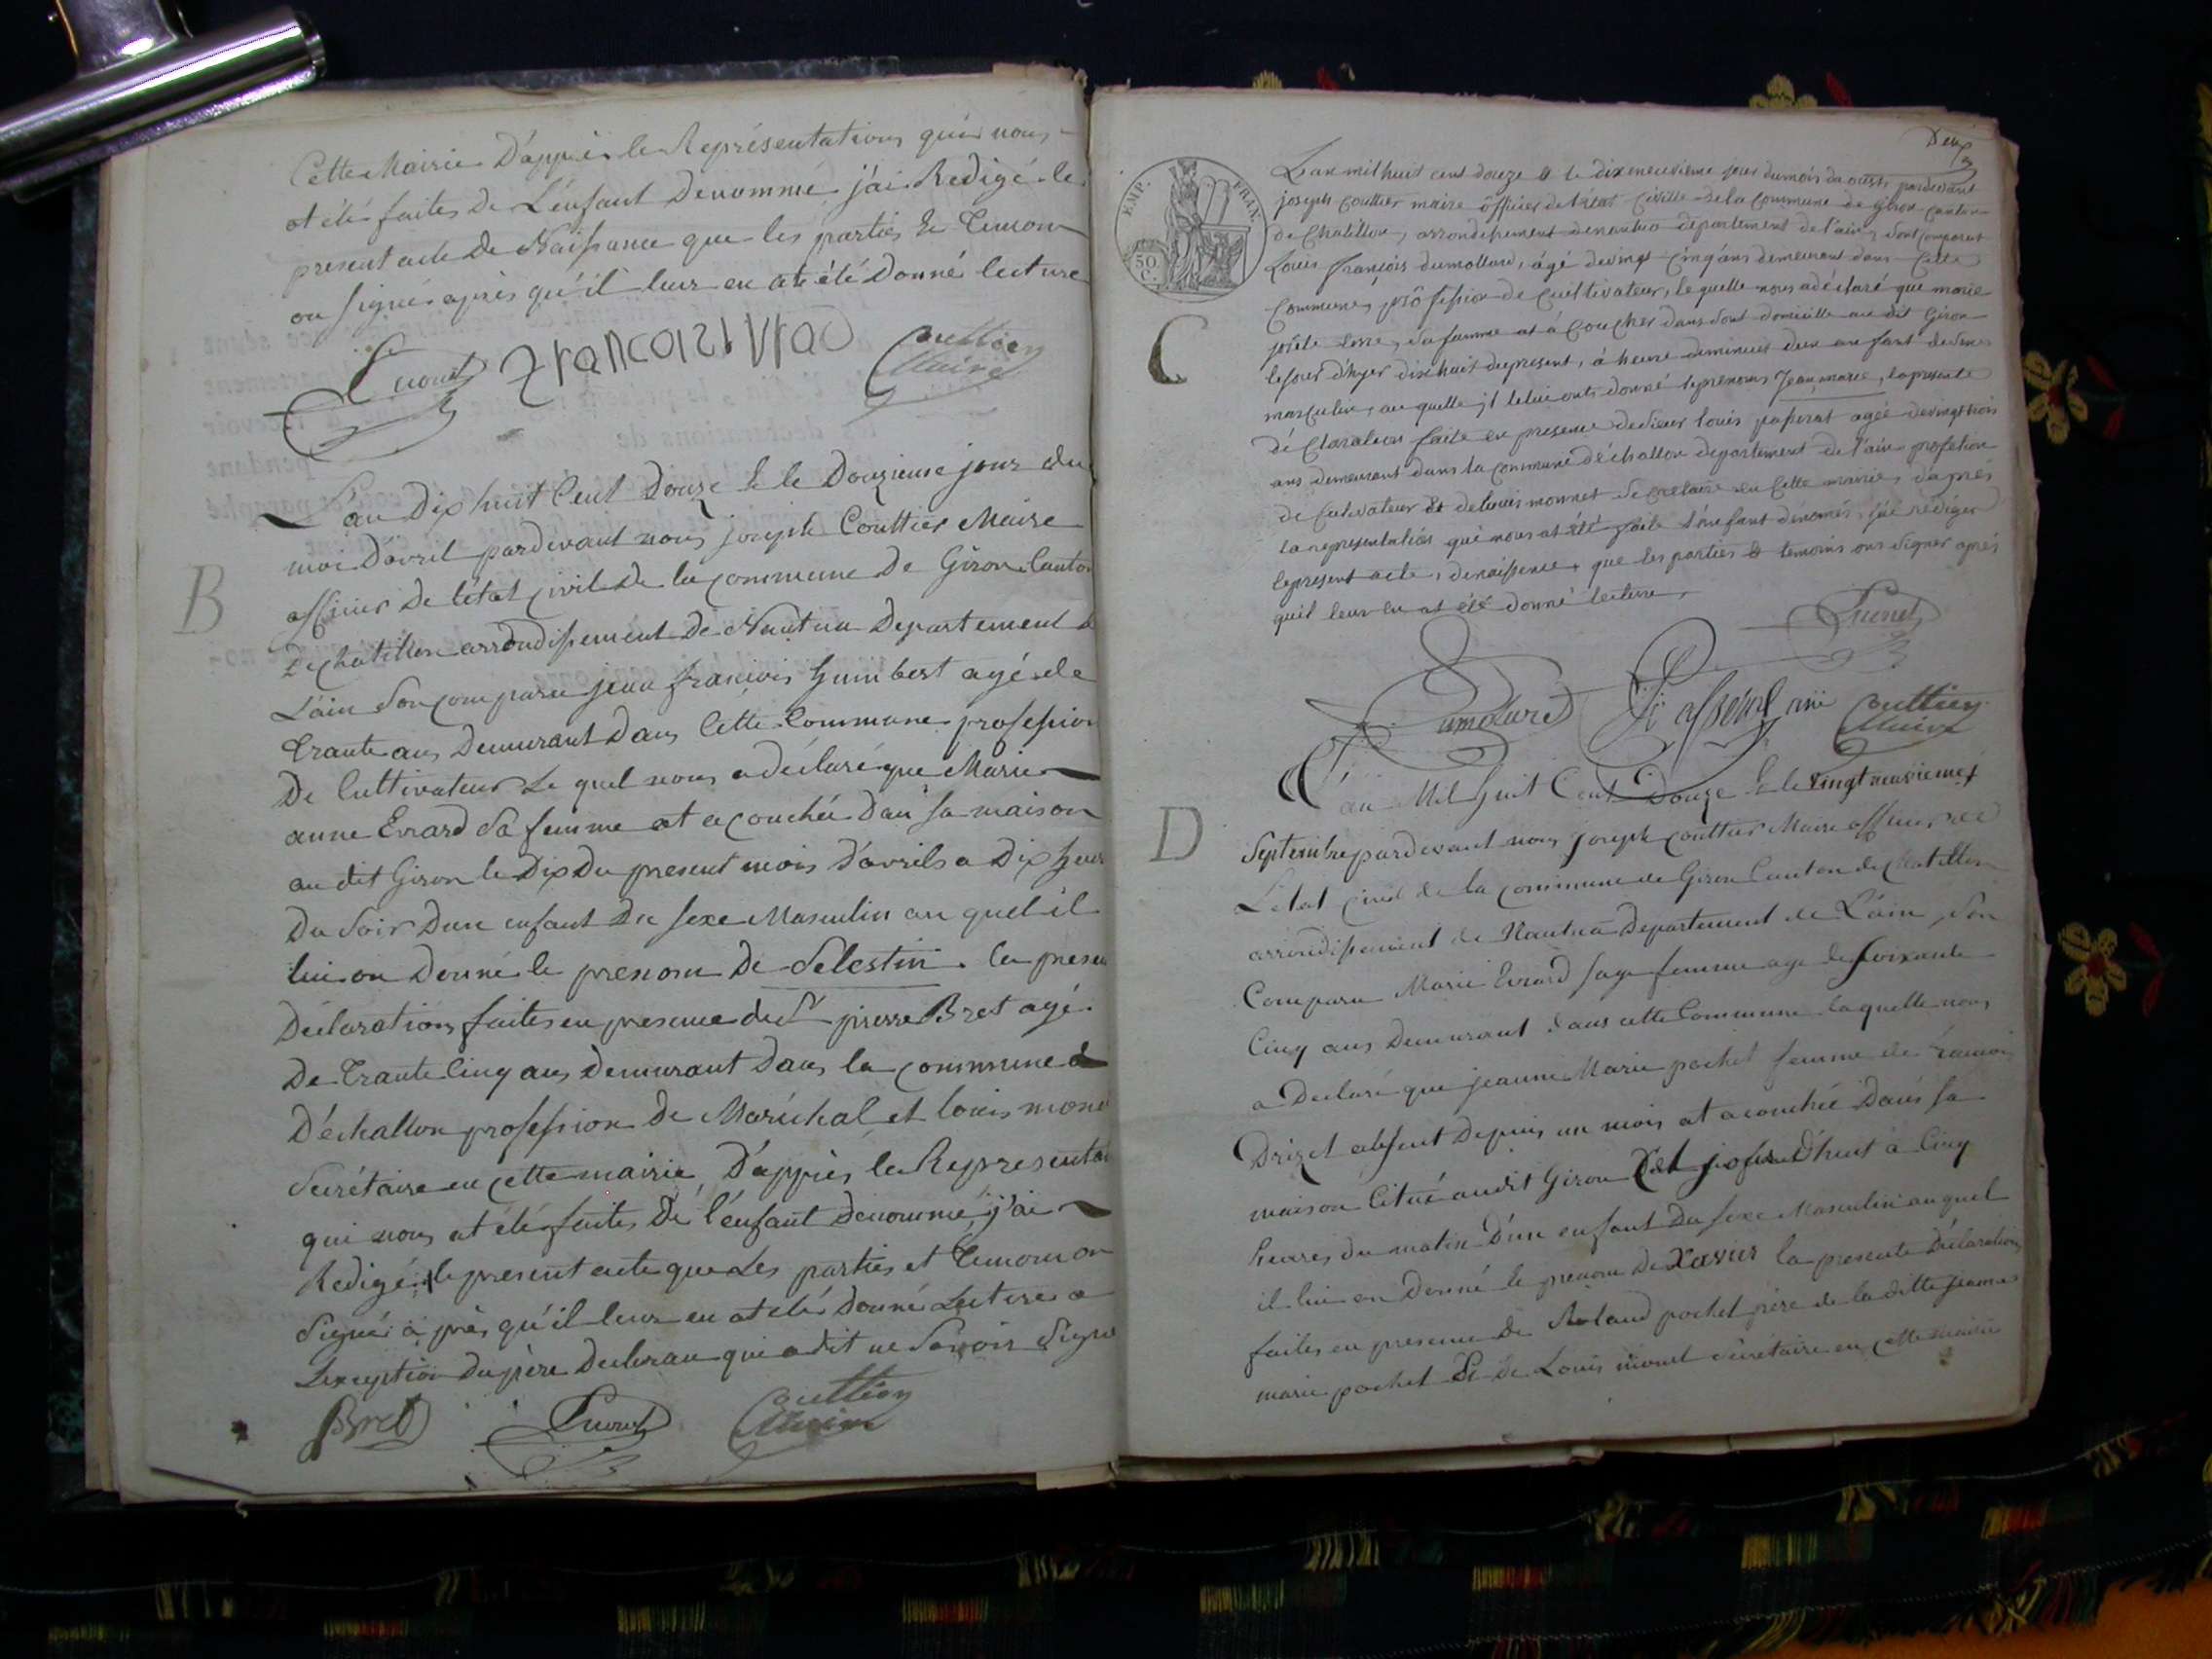 Cette Mairie D'apprès le Représentations qui nous
at été faites de L'enfant Denommé j'ai Redigé le
present acte de Naissance que les parties & Temoin
on signé après qu'il leur en at été Donné lecture
francois
Couttier
Maire
B
L'an Dix huit Cent Douze & le Douzieme jour du
moi D'avril pardevant nous joseph Couttier Maire
officier De l'état civil De la commune De Giron Canton
De chatillon arrondissement De Nantua Departement de
L'ain Son comparu jean françois humbert agé de
Trante ans Demeurant Dans Cette Commune profession
De Cultivateur Le quel nous a déclaré que Marie
anne Evrard Sa femme at acouchée Dan sa maison
au dit Giron le Dix Du present mois D'avrils a Dix heur
Du Soir Dun enfant Du sexe Masculin au quel il
lui on Donné le prenom De Selestin. la presen
Déclaration faites en presence du Sr pierre Bret agé
De Trante Cinq ans Demeurant Dans la commune
D'échallon profession De Maréchal et louis mon
Secrétaire en cette mairie, D'apprès le Represента
qui nous at été faites De l'enfant denommé j'ai
Redigé le present acte que Les parties et Temoin on
Signé a près qu'il leur en at été Donné Lecture a
Lexception du père Declaran qui a dit ne Savoir Signé
Bret
Couttier
Maire
Deux
EMP. FRAN.
50
C.
C
L'an mil huit cent douze & le dix neuvieme jour du mois da oust, pardevant
joseph Couttier maire ôfficier de l'état Civille de la Commune de giron canton
de Chatillon, arrondissement denantuo departement de l'ain, sont comparut
Louis françois dumollard, âgé devingt Cinq ans demeurant dans Cette
Commune, profession de Cultivateur, le quelle nous adéclaré que marie
, Sa famme at à Coucher dans sont domicille au dit Giron
le jour d'hyer dix huit du present, à heure deminuit dun anfant desexe
masculin, au quelle il lelui onts donné leprenoms Jean marie, lapresente
dé Claration faite en presence dedieur louis passerat agée devingt trois
ans demeurant dans la Commune déchallon departement de l'ain profetion
de Cultivateur et de louis monnet Secretaire en Cette mairie, d'apres
la representation qui nous at été faite l'enfant dénomés, j'ai rédiger
lepresent acte, denaissence, que les parties & temoins ons Signer après
quil leur en at été donné lecture,
Couttier
Maire
D
L'an Mil huit Cent Douze & le Vingt neuvieme
Septembre pardevant nous joseph couttier Maire officier de
L'état civil de la commune de Giron Canton de Chatillon
arrondissement de Nantua Departement de L'ain, Son
Comparu Marie Evrard sage femme age de Soixante
Cinq ans Demeurant dans cette Commune laquelle nous
a Declaré que jeanne Marie pochet femme de
Drizet absent Depuis un mois at acouchée Dans sa
maison Citué audit Giron jourd'huit à Cinq
heures du matin D'un enfant Du sexe Masculin auquel
il lui on Donné le prenom De Xavier la presente Déclaration
faites en presence De Roland pochet père de la ditte jeanne
marie pochet Et De Louis monet Secrétaire en cette mairie